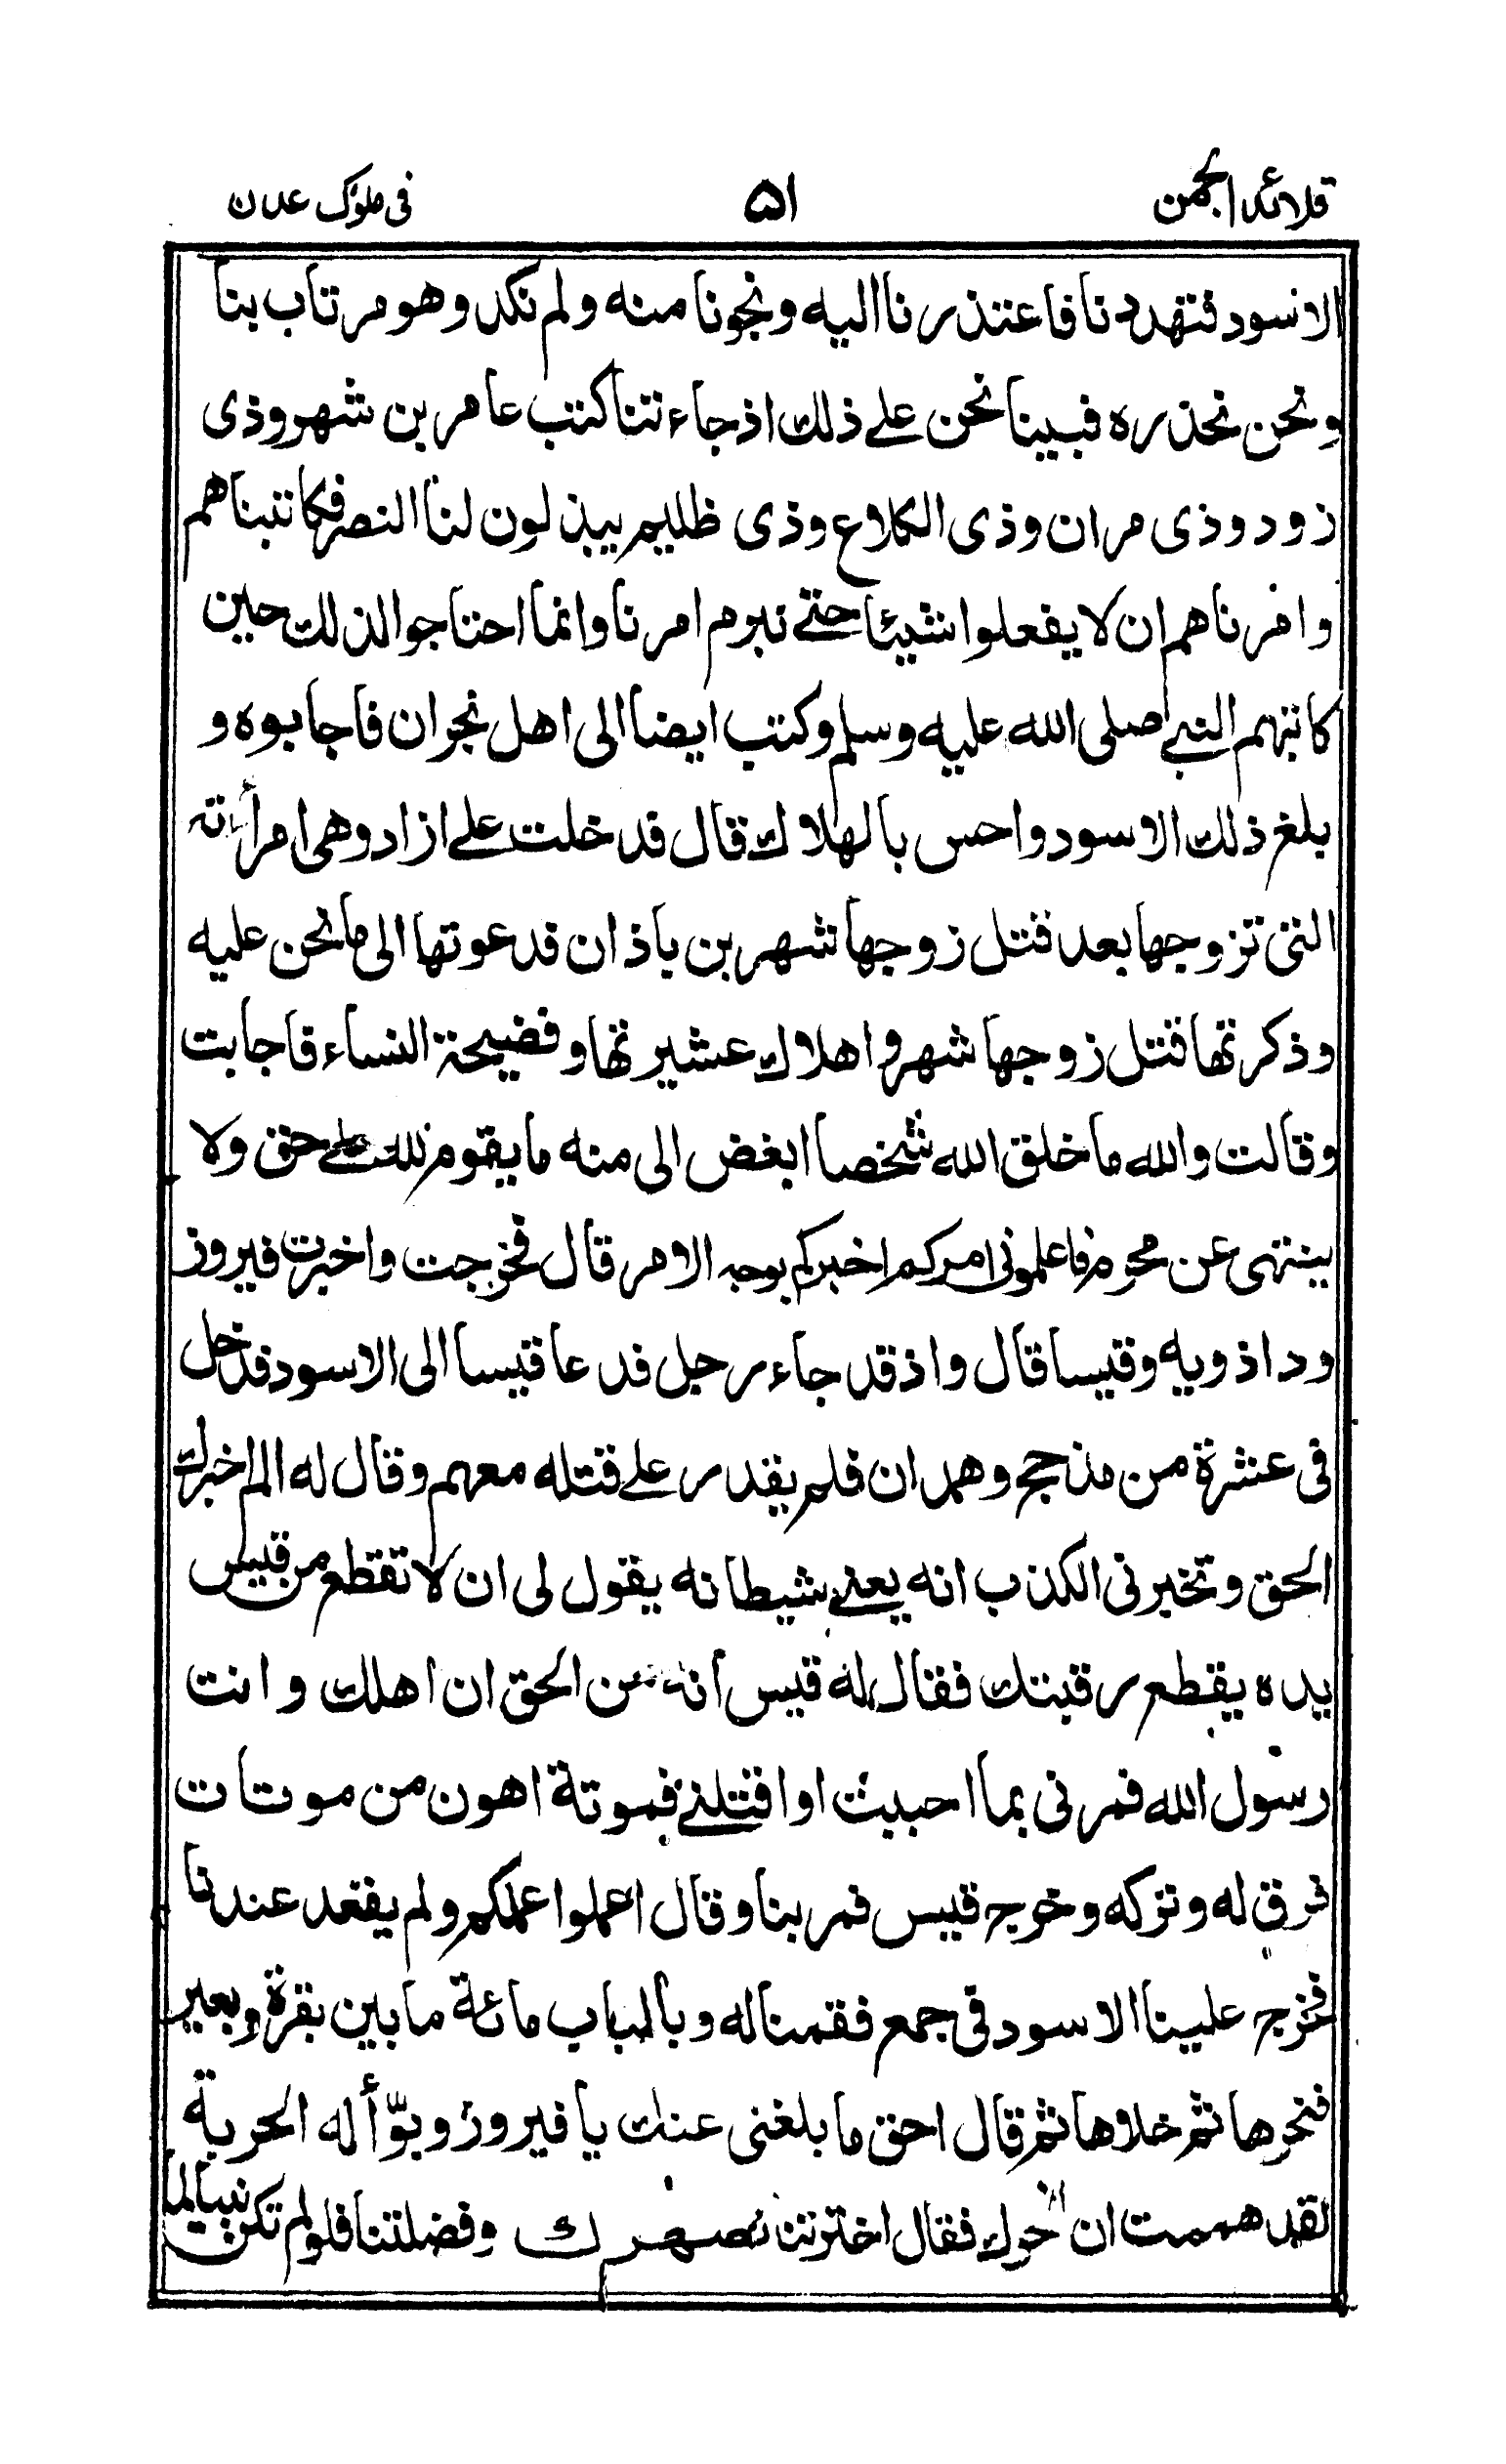 قلائد الجمن ٥١ فى ملوك عدن
الاسود فتهددنا فاعتذرنا اليه ونجونا منه ولم نكد وهو مرتاب بنا
ونحن نحذره فبينا نحن على ذلك اذ جاءتنا كتب عامر بن شهر وذى
زود وذى مران وذى الكلاع وذى ظليم يبذلون لنا النصر فكاتبناهم
وامرناهم ان لا يفعلوا شيئا حتى نبرم امرنا وانما احتاجوا لذلك حين
كاتبهم النبى صلى الله عليه وسلم وكتب ايضا الى اهل نجران فاجابوه و
بلغ ذلك الاسود واحس بالهلاك قال قدخلت على ازاد وهى امرأته
التى تزوجها بعد قتل زوجها شهر بن باذان فدعوتها الى ما نحن عليه
وذكرتها قتل زوجها شهر واهلاك عشيرتها وفضيحة النساء فاجابت
وقالت والله ما خلق الله شخصا ابغض الى منه ما يقوم لله على حق ولا
ينتهى عن محرم فاعلمونى امركم اخبركم بوجه الامر قال فخرجت واخبرت فيروز
وداذويه وقيسا قال واذ قد جاء رجل فدعا قيسا الى الاسود فدخل
فى عشرة من مذحج وهمدان فلم يقدر على قتله معهم وقال له الم اخبرك
الحق وتخبرنى الكذب انه يعنى شيطانه يقول لى ان لا تقطع من قيس
يده يقطع رقبتك فقال له قيس انه من الحق ان اهلك وانت
رسول الله فمرنى بما احببت او اقتلنى فموتة اهون من موتات
فرق له وتركه وخرج قيس فمر بنا وقال اعملوا عملكم ولم يقعد عندنا
فخرج علينا الاسود فى جمع فقمنا له وبالباب مائة ما بين بقرة وبعير
فنحرها ثم خلاها ثم قال احق ما بلغنى عنك يا فيروز وبوّأ له الحربة
لقد هممت ان فقال اخترتنا لصهرك وفضلتنا فلو لم تكن نبيا لما